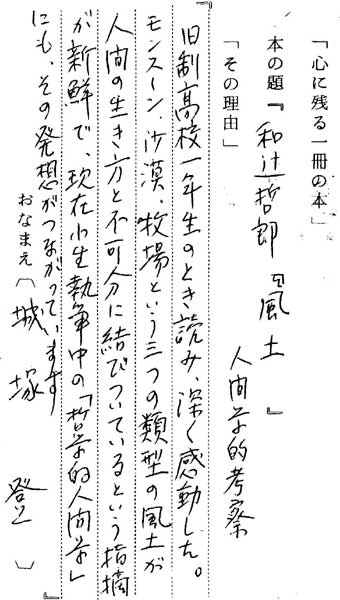 「心に残る一冊の本」
本の題『和辻哲郎『風土』
人間学的考察
「その理由」
旧制高校一年生のとき読み、深く感動した。
モンスーン、沙漠、牧場という三つの類型の風土が
人間の生き方と不可分に結びついているという指摘
が新鮮で、現在小生執筆中の「哲学的人間学」
にも、その発想がつながっています
おなまえ〔城塚 登〕